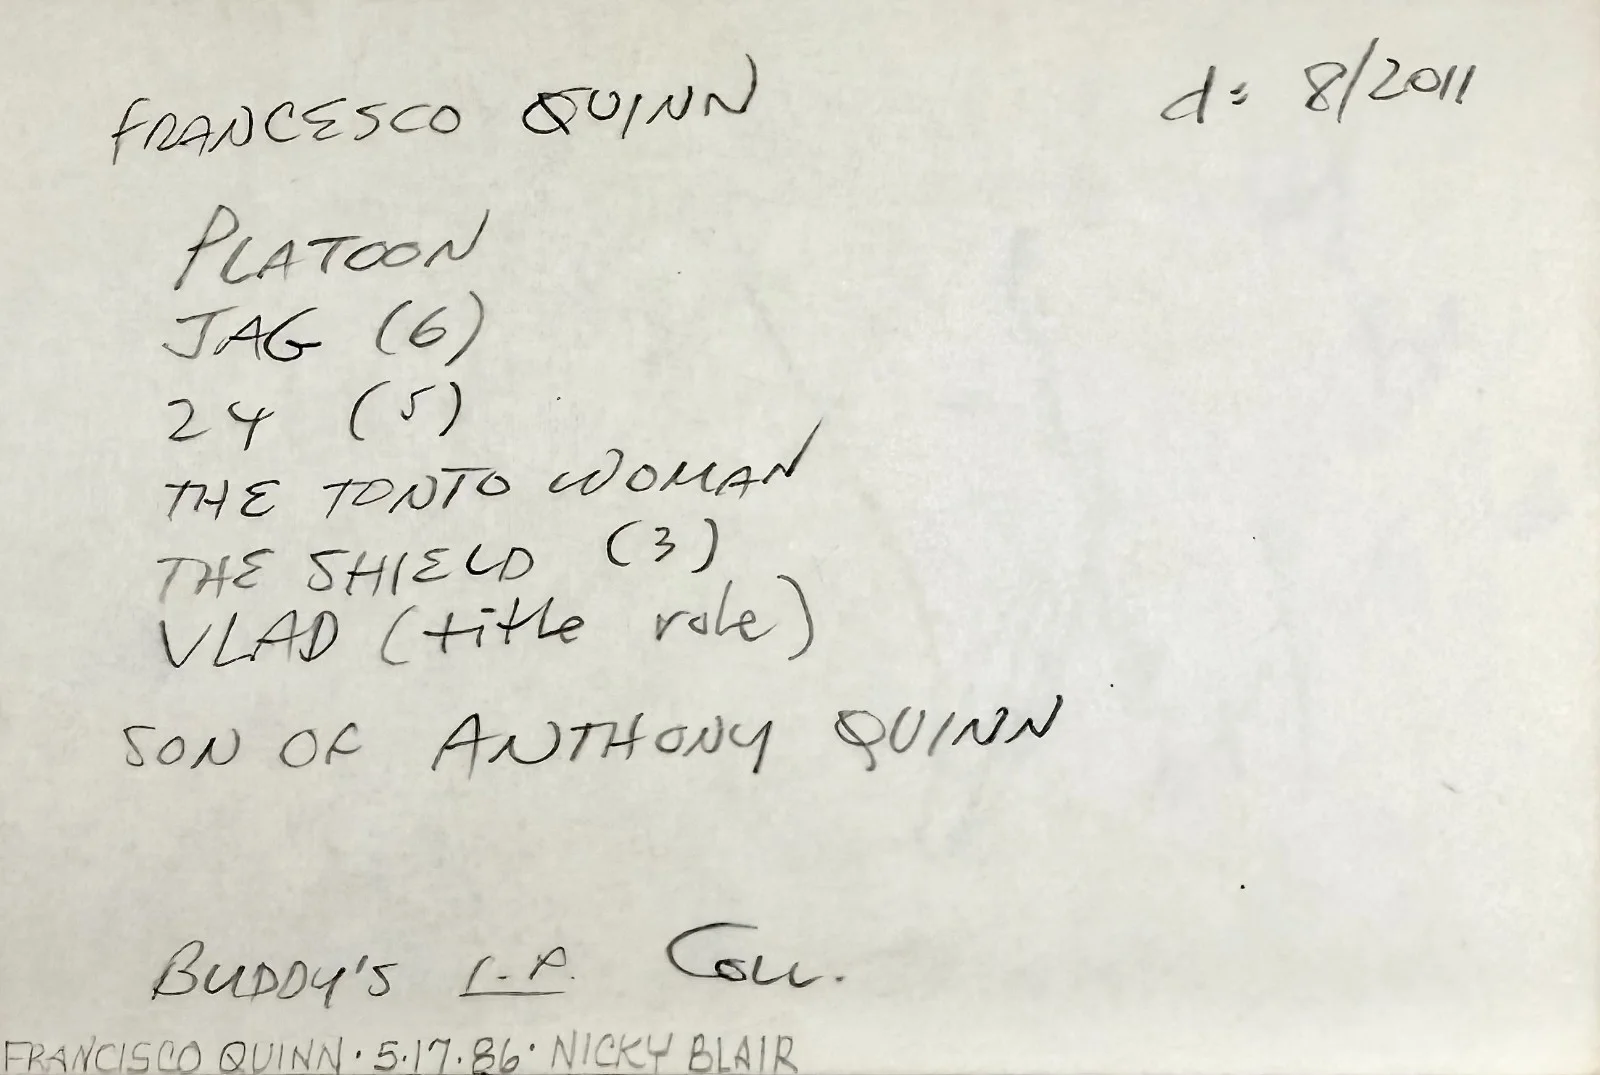 FRANCESCO QUINN
d: 8/2011
PLATOON
JAG (6)
24 (5)
THE TONTO WOMAN
THE SHIELD (3)
VLAD (title role)
SON OF ANTHONY QUINN
BUDDY'S L.A. Coll.
FRANCISCO QUINN · 5·17·86 · NICKY BLAIR